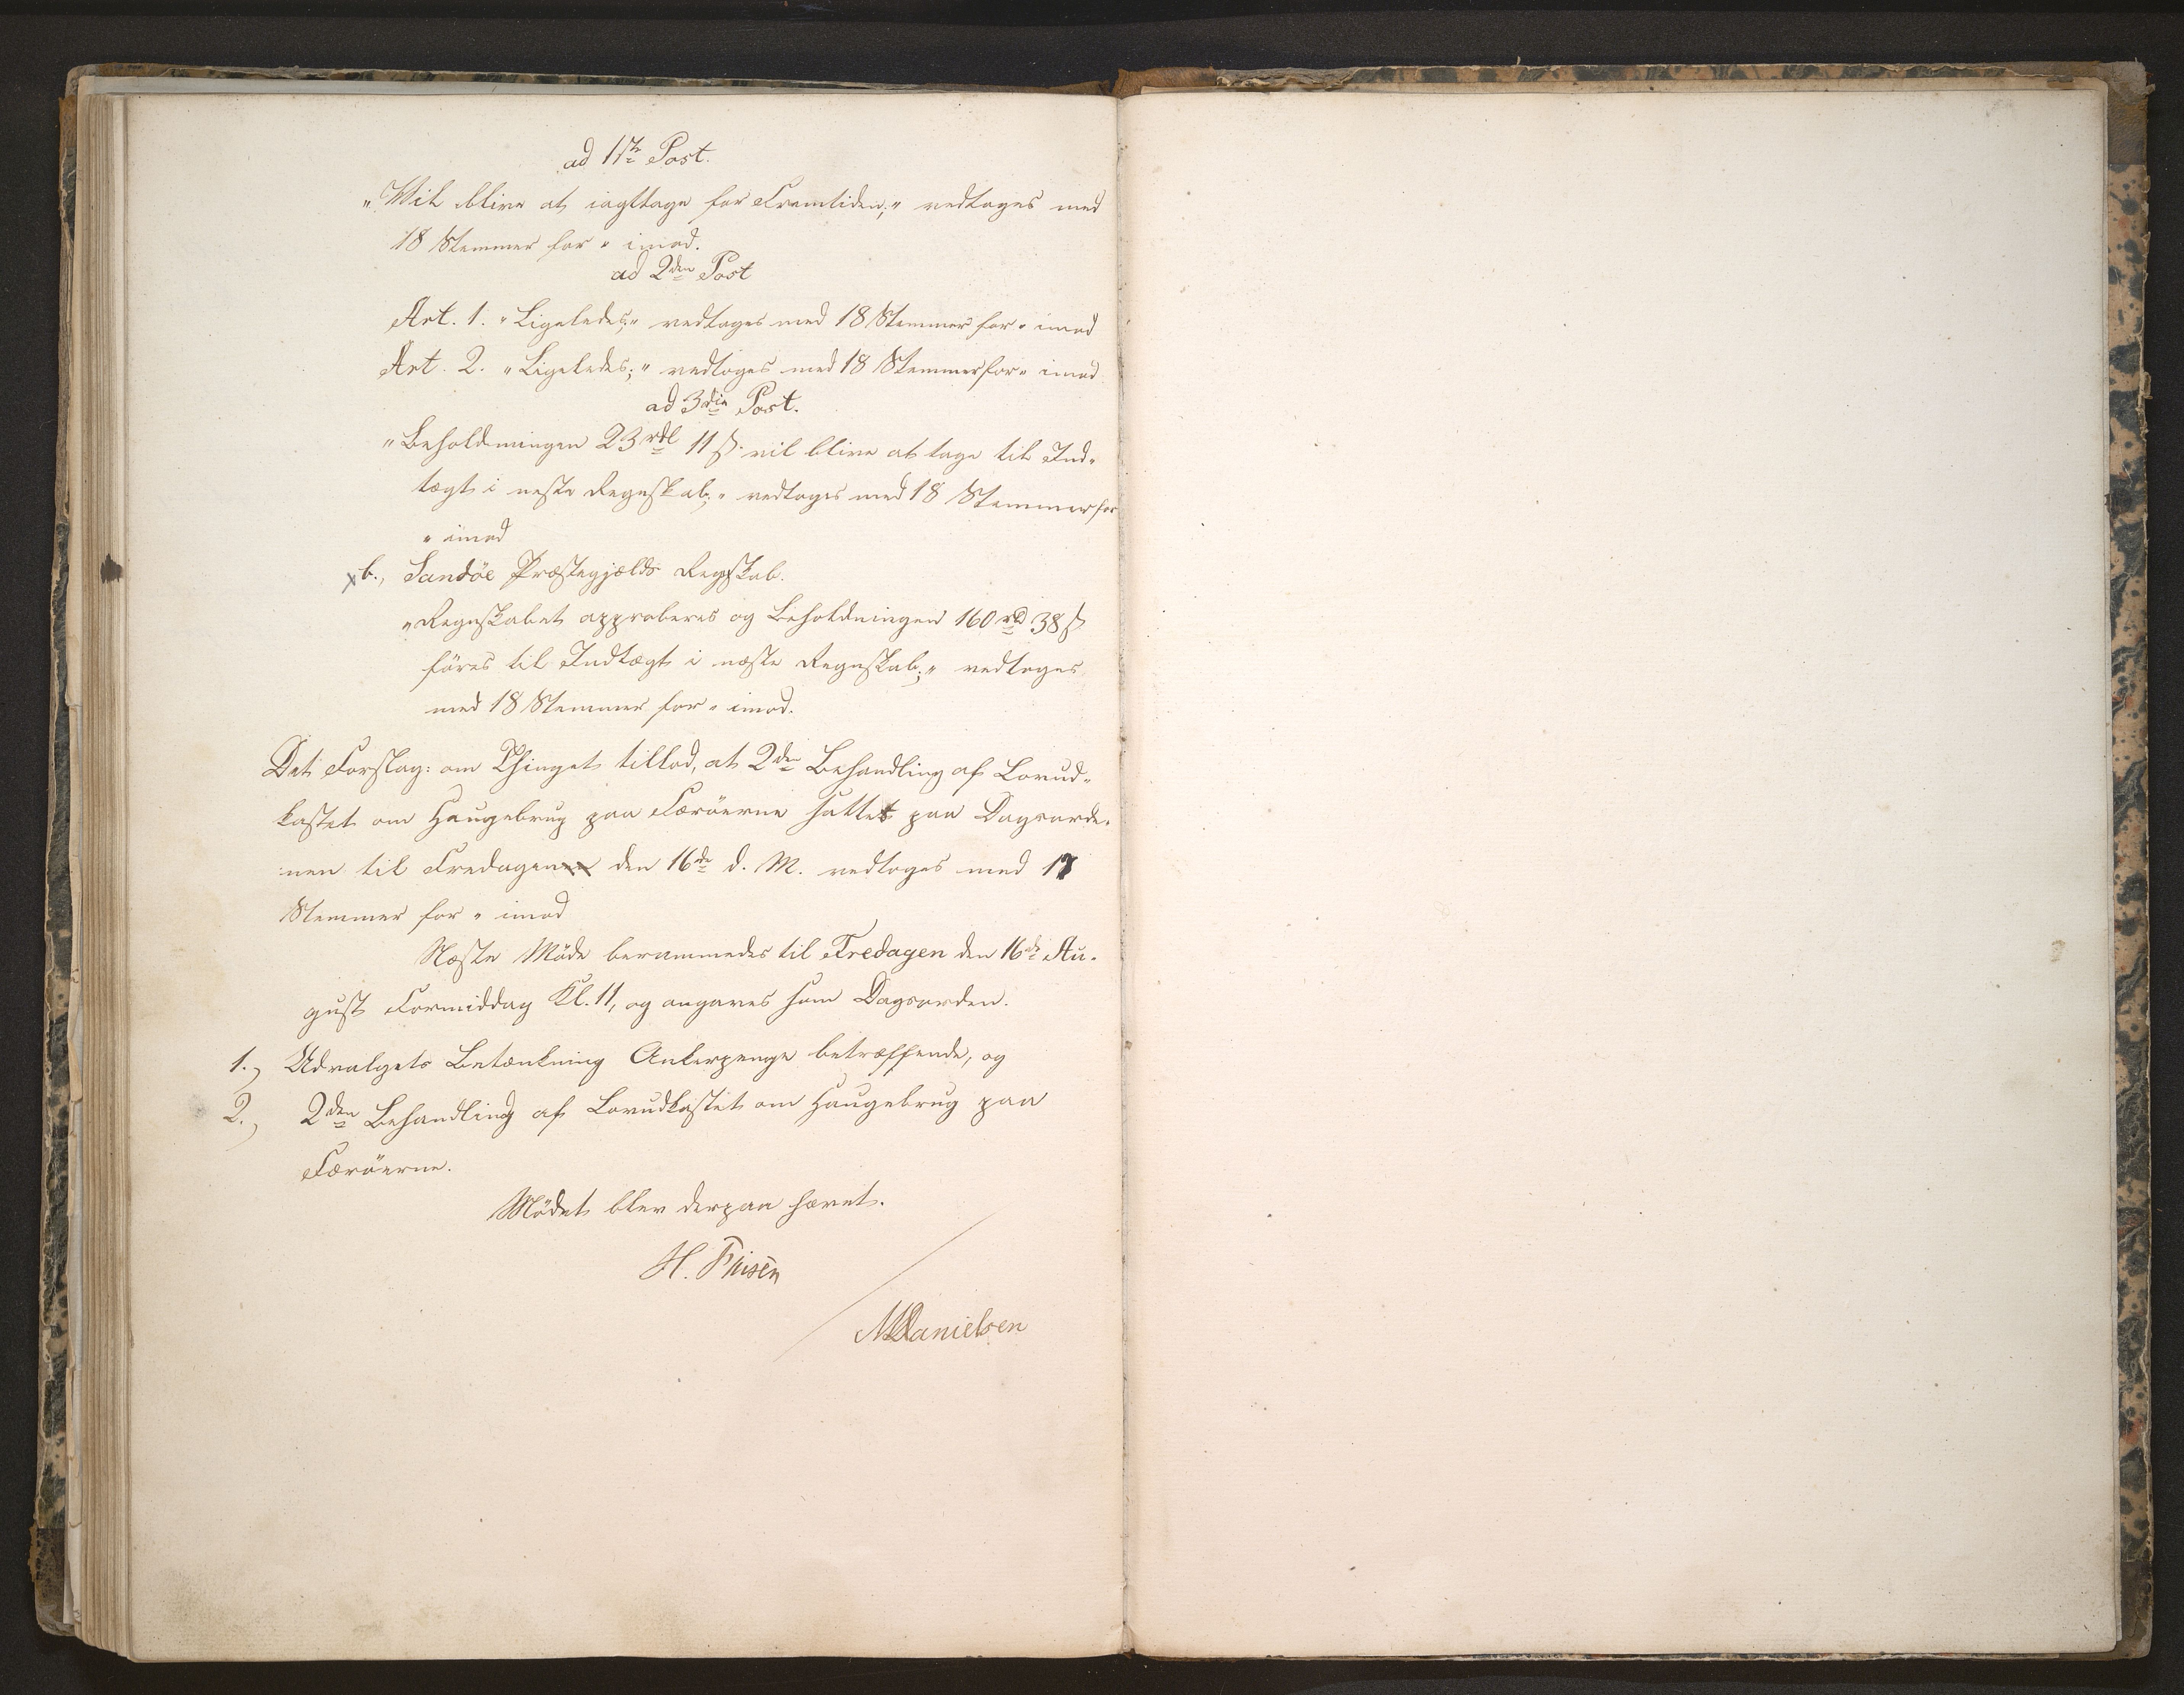 ad 1ste Post.
"Vil blive at iagttage for Fremtiden;" vedtoges med
18 Stemmer for " imod.
ad 2den Post
Art. 1. "Ligeledes;" vedtoges med 18 Stemmer for " imod
Art. 2. "Ligeledes;" vedtoges med 18 Stemmer for " imod
ad 3die Post.
"Beholdningen 23 rdl 11 ß. vil blive at tage til Ind-
tægt i neste Regnskab;" vedtoges med 18 Stemmer for
" imod
x b., Sandöe Præstegjælds Regnskab.
"Regnskabet approberes og Beholdningen 160 rd 38 ß
föres til Indtægt i næste Regnskab;" vedtoges
med 18 Stemmer for " imod.
Det Forslag: om Thinget tillod, at 2den Behandling af Lovud-
kastet om Haugebrug paa Færöerne sattes paa Dagsorde-
nen til Fredagen den 16de d. M. vedtoges med 17
Stemmer for " imod
Næste Möde berammedes til Fredagen den 16de Au-
gust Formiddag Kl. 11, og angaves som Dagsorden.
1., Udvalgets Betænkning Ankerpenge betræffende, og
2., 2den Behandling af Lovudkastet om Haugebrug paa
Færöerne.
Mödet blev derpaa hævet.
H. Finsen
/ MDanielsen